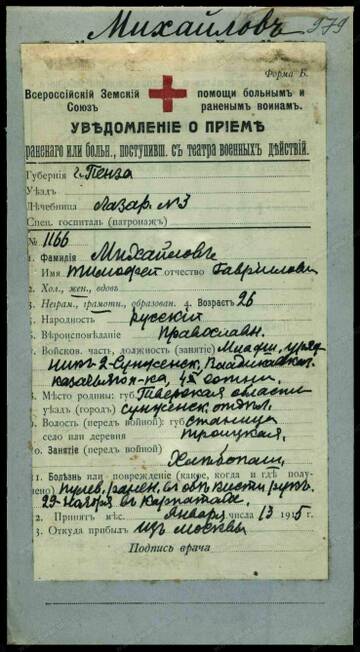 Михайловъ 979
Форма Б.
Всероссійскій Земскій Союзъ помощи больнымъ и раненымъ воинамъ.
УВѢДОМЛЕНІЕ О ПРІЕМѢ
раненаго или больн., поступивш. съ театра военныхъ дѣйствій.
Губернія г. Пенза
Уѣздъ
Лечебница Лазар. №3
Спец. госпиталь (патронажъ)
№ 1166
1. Фамилія Михайловъ
Имя Тимофей отчество Гавриилови
2. Хол., жен., вдовъ
3. Неграм., грамотн., образован. 4. Возрастъ 26
5. Народность русскій
6. Вѣроисповѣданіе православн.
7. Войсков. часть, должность (занятіе) Младш. уряд
никъ 2 Сунженск. Владикавказ.
казачьяго п-ка, 4й сотни.
8. Мѣсто родины: губ. Терской области
уѣздъ (городъ) Сунженск. отдѣл.
9. Волость (передъ войной): губ станица
село или деревня Троицкая,
10. Занятіе (передъ войной)
Хлѣбопаш.
11. Болѣзнь или поврежденіе (какое, когда и гдѣ получено) пулев. ранен. въ обѣ кисти рукъ.
29 ноября въ Карпатахъ.
2. Принятъ мѣс. Января числа 13 1915 г.
3. Откуда прибылъ изъ Москвы
Подпись врача